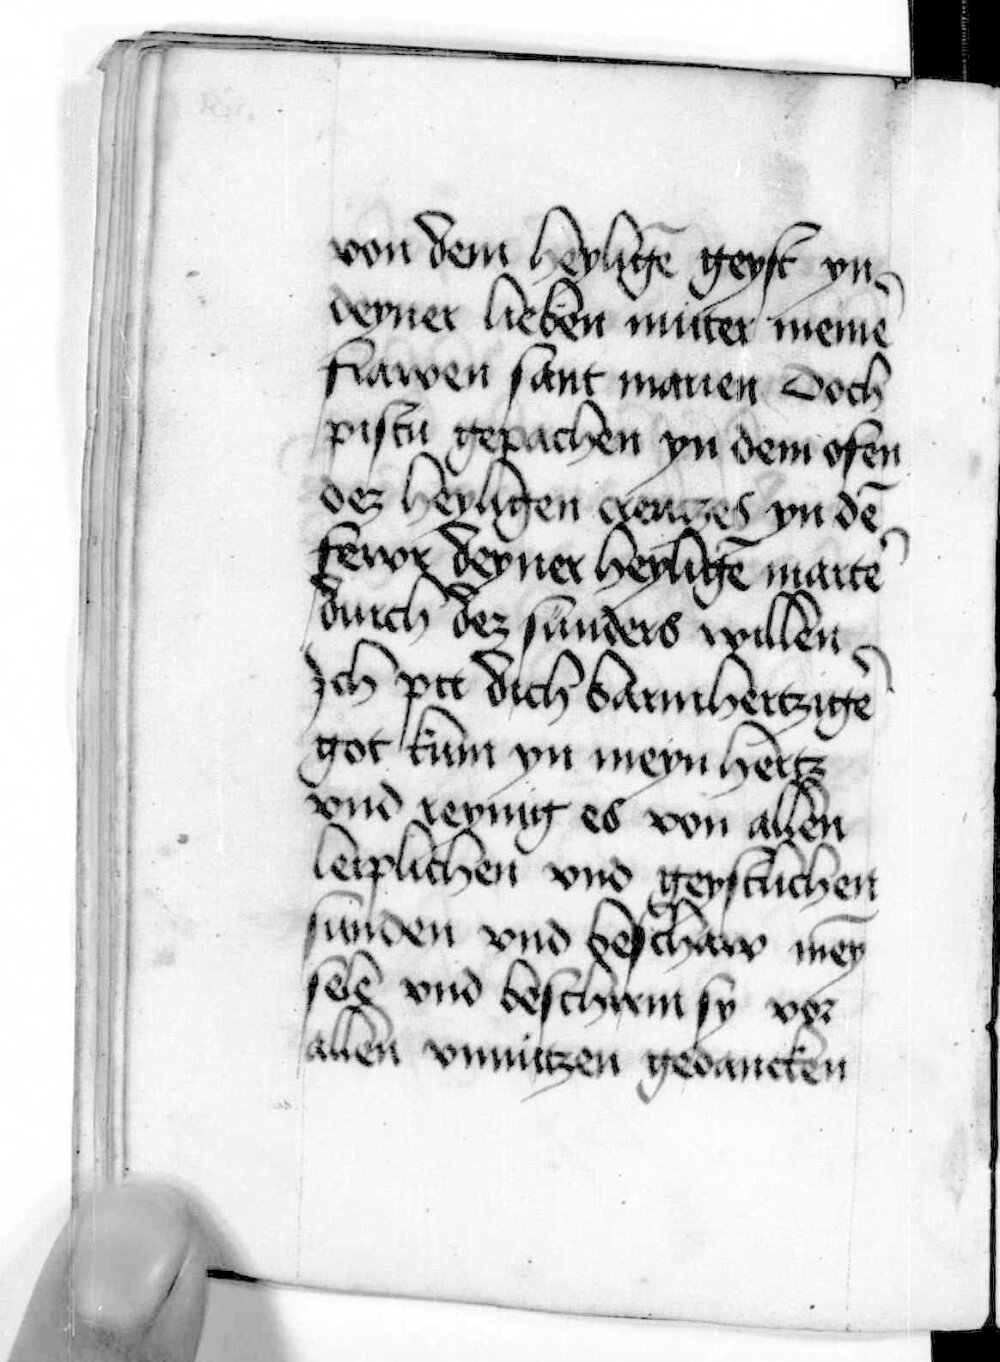 von dem heyliḡe geyst yn
deyner lieben muter meinē
frawen sant marien Doch
pistu gepachen yn dem ofen
dez heyligen creutzes yn dē
fewr deyner heyligē marter
durch dez sunders willen
Ich pit dich barmhertziger
got kum yn meyn hertz
vnd reynig es von allen
leiplichen vnd geystlichen
sunden vnd beschaw meȳ
sele vnd beschirm sy vor
allen vnnutzen gedancken